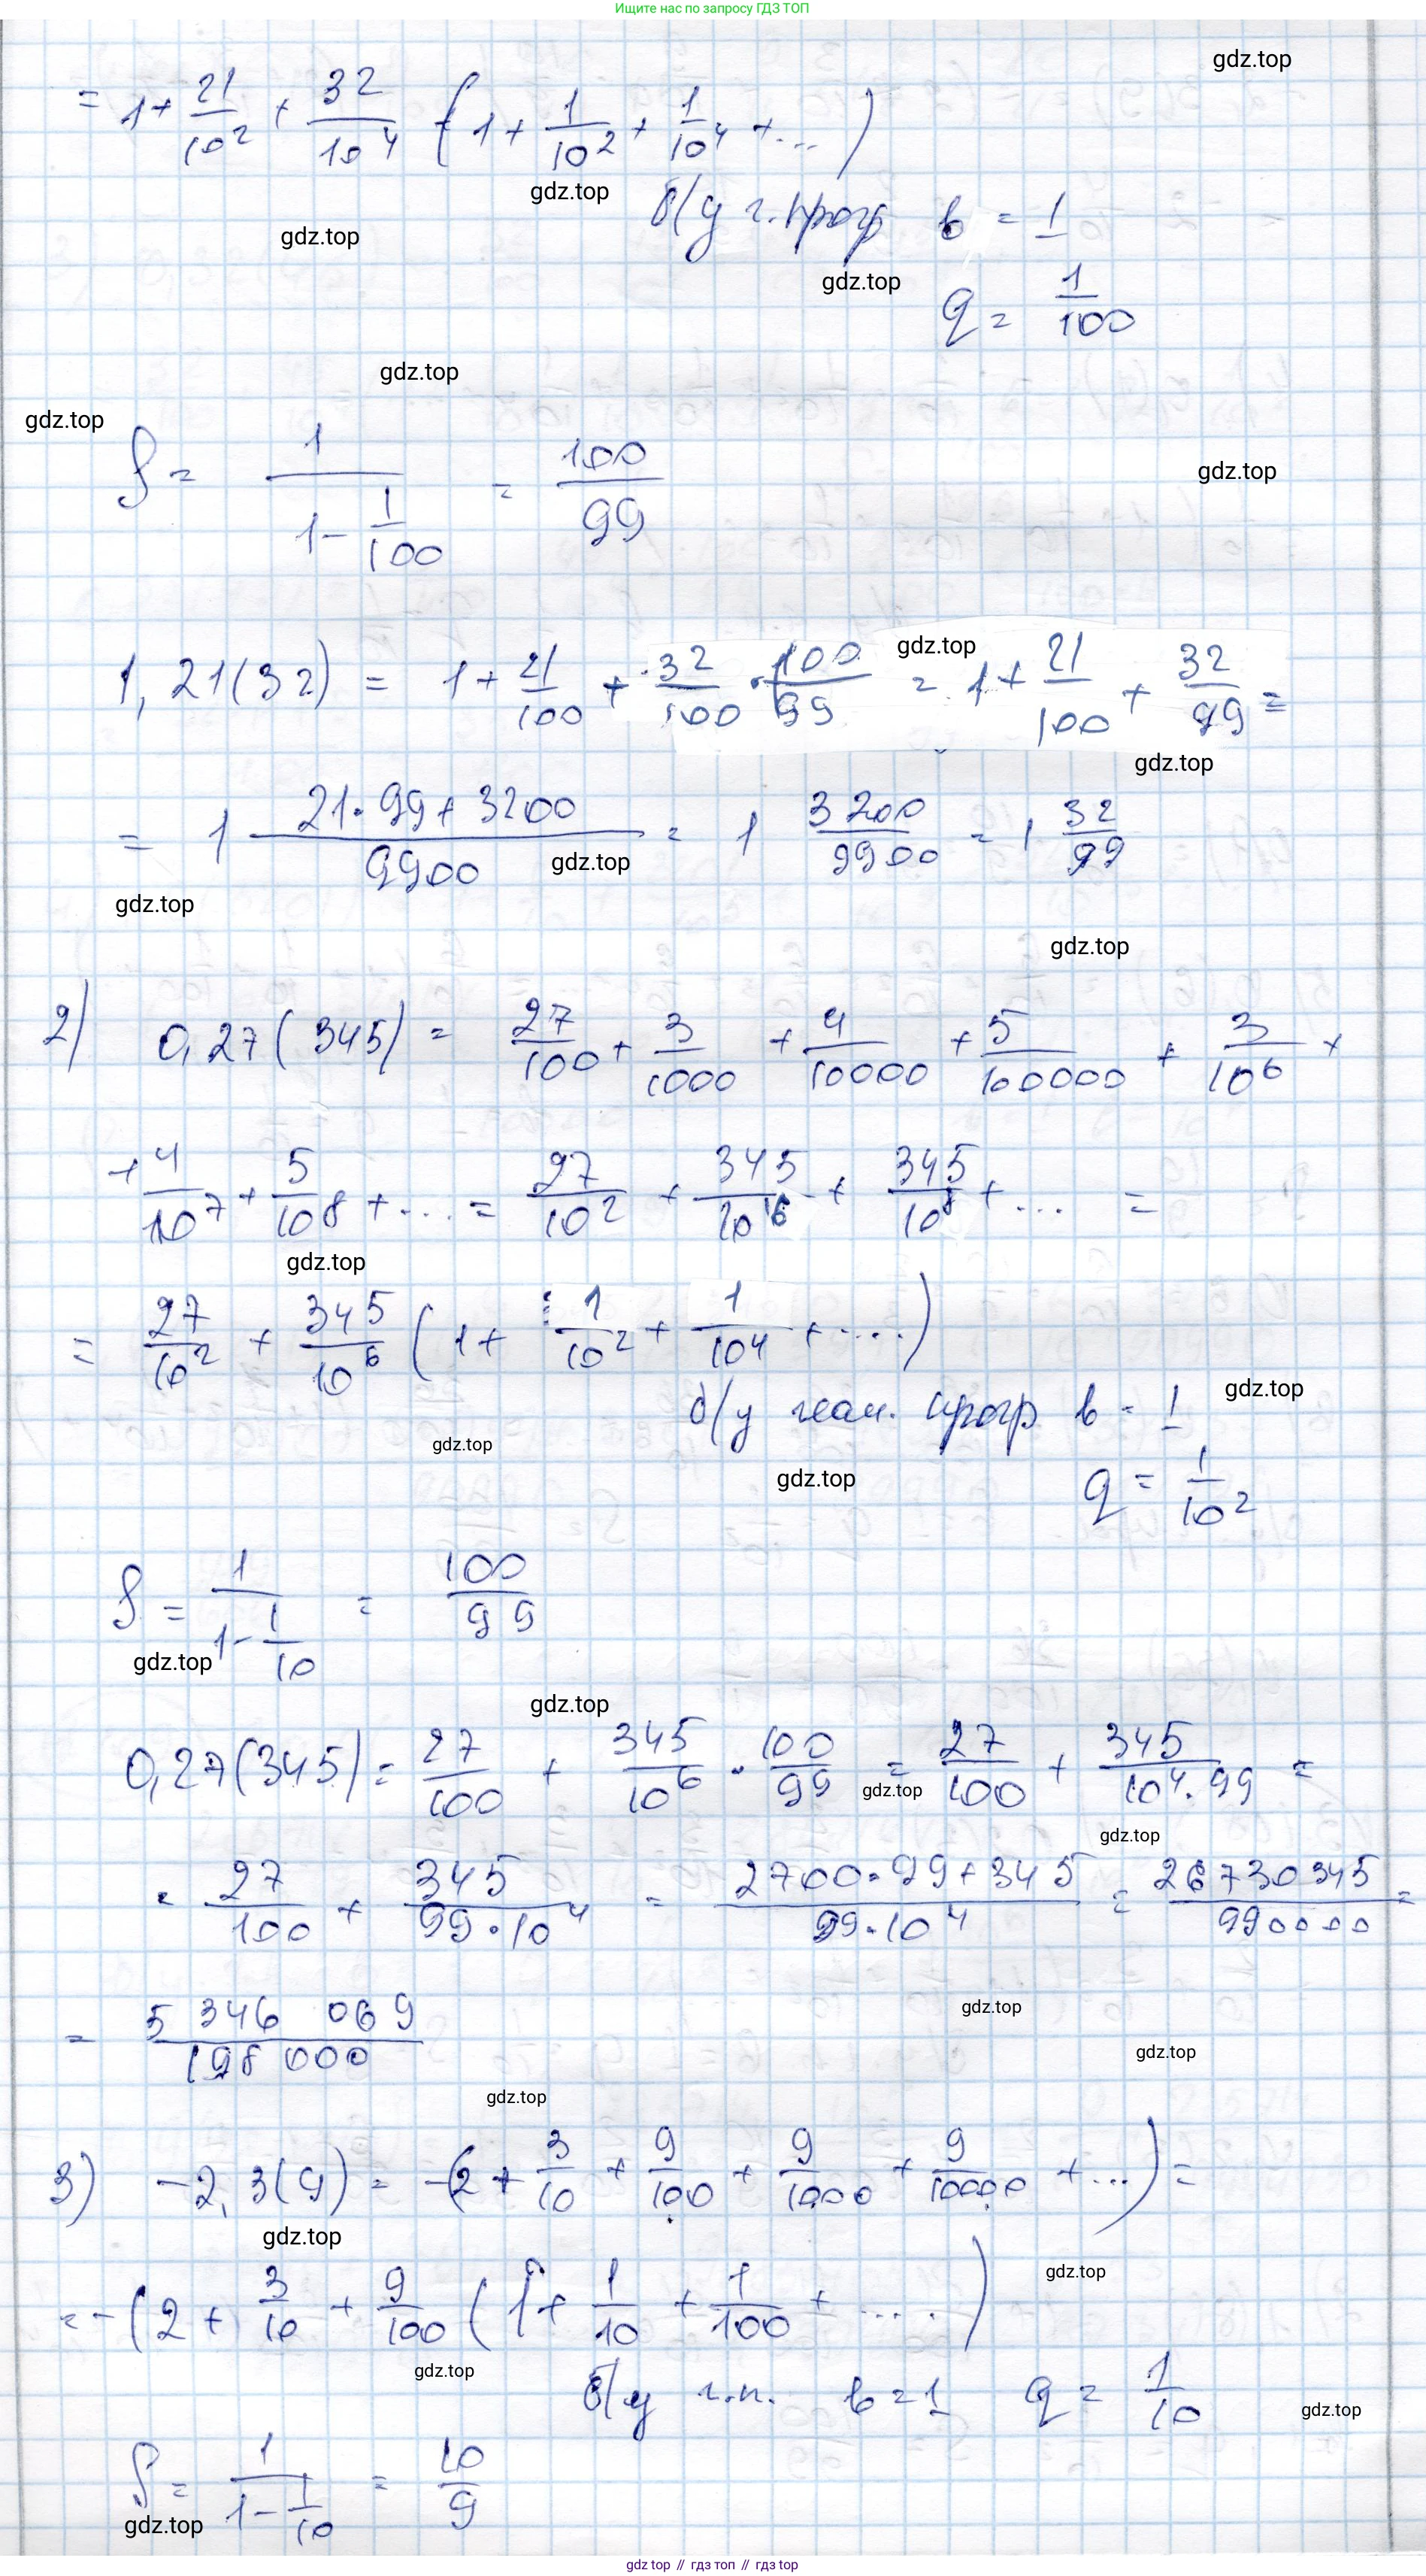 Ищите нас по запросу ГДЗ ТОП
gdz.top
= 1 + 21/10² + 32/10⁴ (1 + 1/10² + 1/10⁴ + ...)
gdz.top
б/у г. прогр b = 1
gdz.top
gdz.top
q = 1/100
gdz.top
gdz.top
S = 1/(1 - 1/100) = 100/99
gdz.top
1,21(32) = 1 + 21/100 + 32/100 · 100/99 = 1 + 21/100 + 32/99 =
gdz.top
gdz.top
= 1 (21·99 + 3200)/9900 = 1 3200/9900 = 1 32/99
gdz.top
gdz.top
gdz.top
2) 0,27(345) = 27/100 + 3/1000 + 4/10000 + 5/100000 + 3/10⁶ +
+ 4/10⁷ + 5/10⁸ + ... = 27/10² + 345/10⁶ + 345/10⁸ + ... =
gdz.top
= 27/10² + 345/10⁶ (1 + 1/10² + 1/10⁴ + ....)
б/у геом. прогр b = 1
gdz.top
gdz.top
gdz.top
q = 1/10²
S = 1/(1 - 1/10) = 100/99
gdz.top
gdz.top
0,27(345) = 27/100 + 345/10⁶ · 100/99 = 27/100 + 345/(10⁴·99) =
gdz.top
gdz.top
= 27/100 + 345/(99·10⁴) = (2700·99 + 345)/(99·10⁴) = 26730345/990000 =
= 5 346 069/198 000
gdz.top
gdz.top
gdz.top
3) -2,3(9) = -(2 + 3/10 + 9/100 + 9/1000 + 9/10000 + ...) =
gdz.top
= -(2 + 3/10 + 9/100 (1 + 1/10 + 1/100 + .....)
gdz.top
gdz.top
б/у г.п. b = 1 q = 1/10
gdz.top
S = 1/(1 - 1/10) = 10/9
gdz.top
gdz top // гдз топ // gdz top